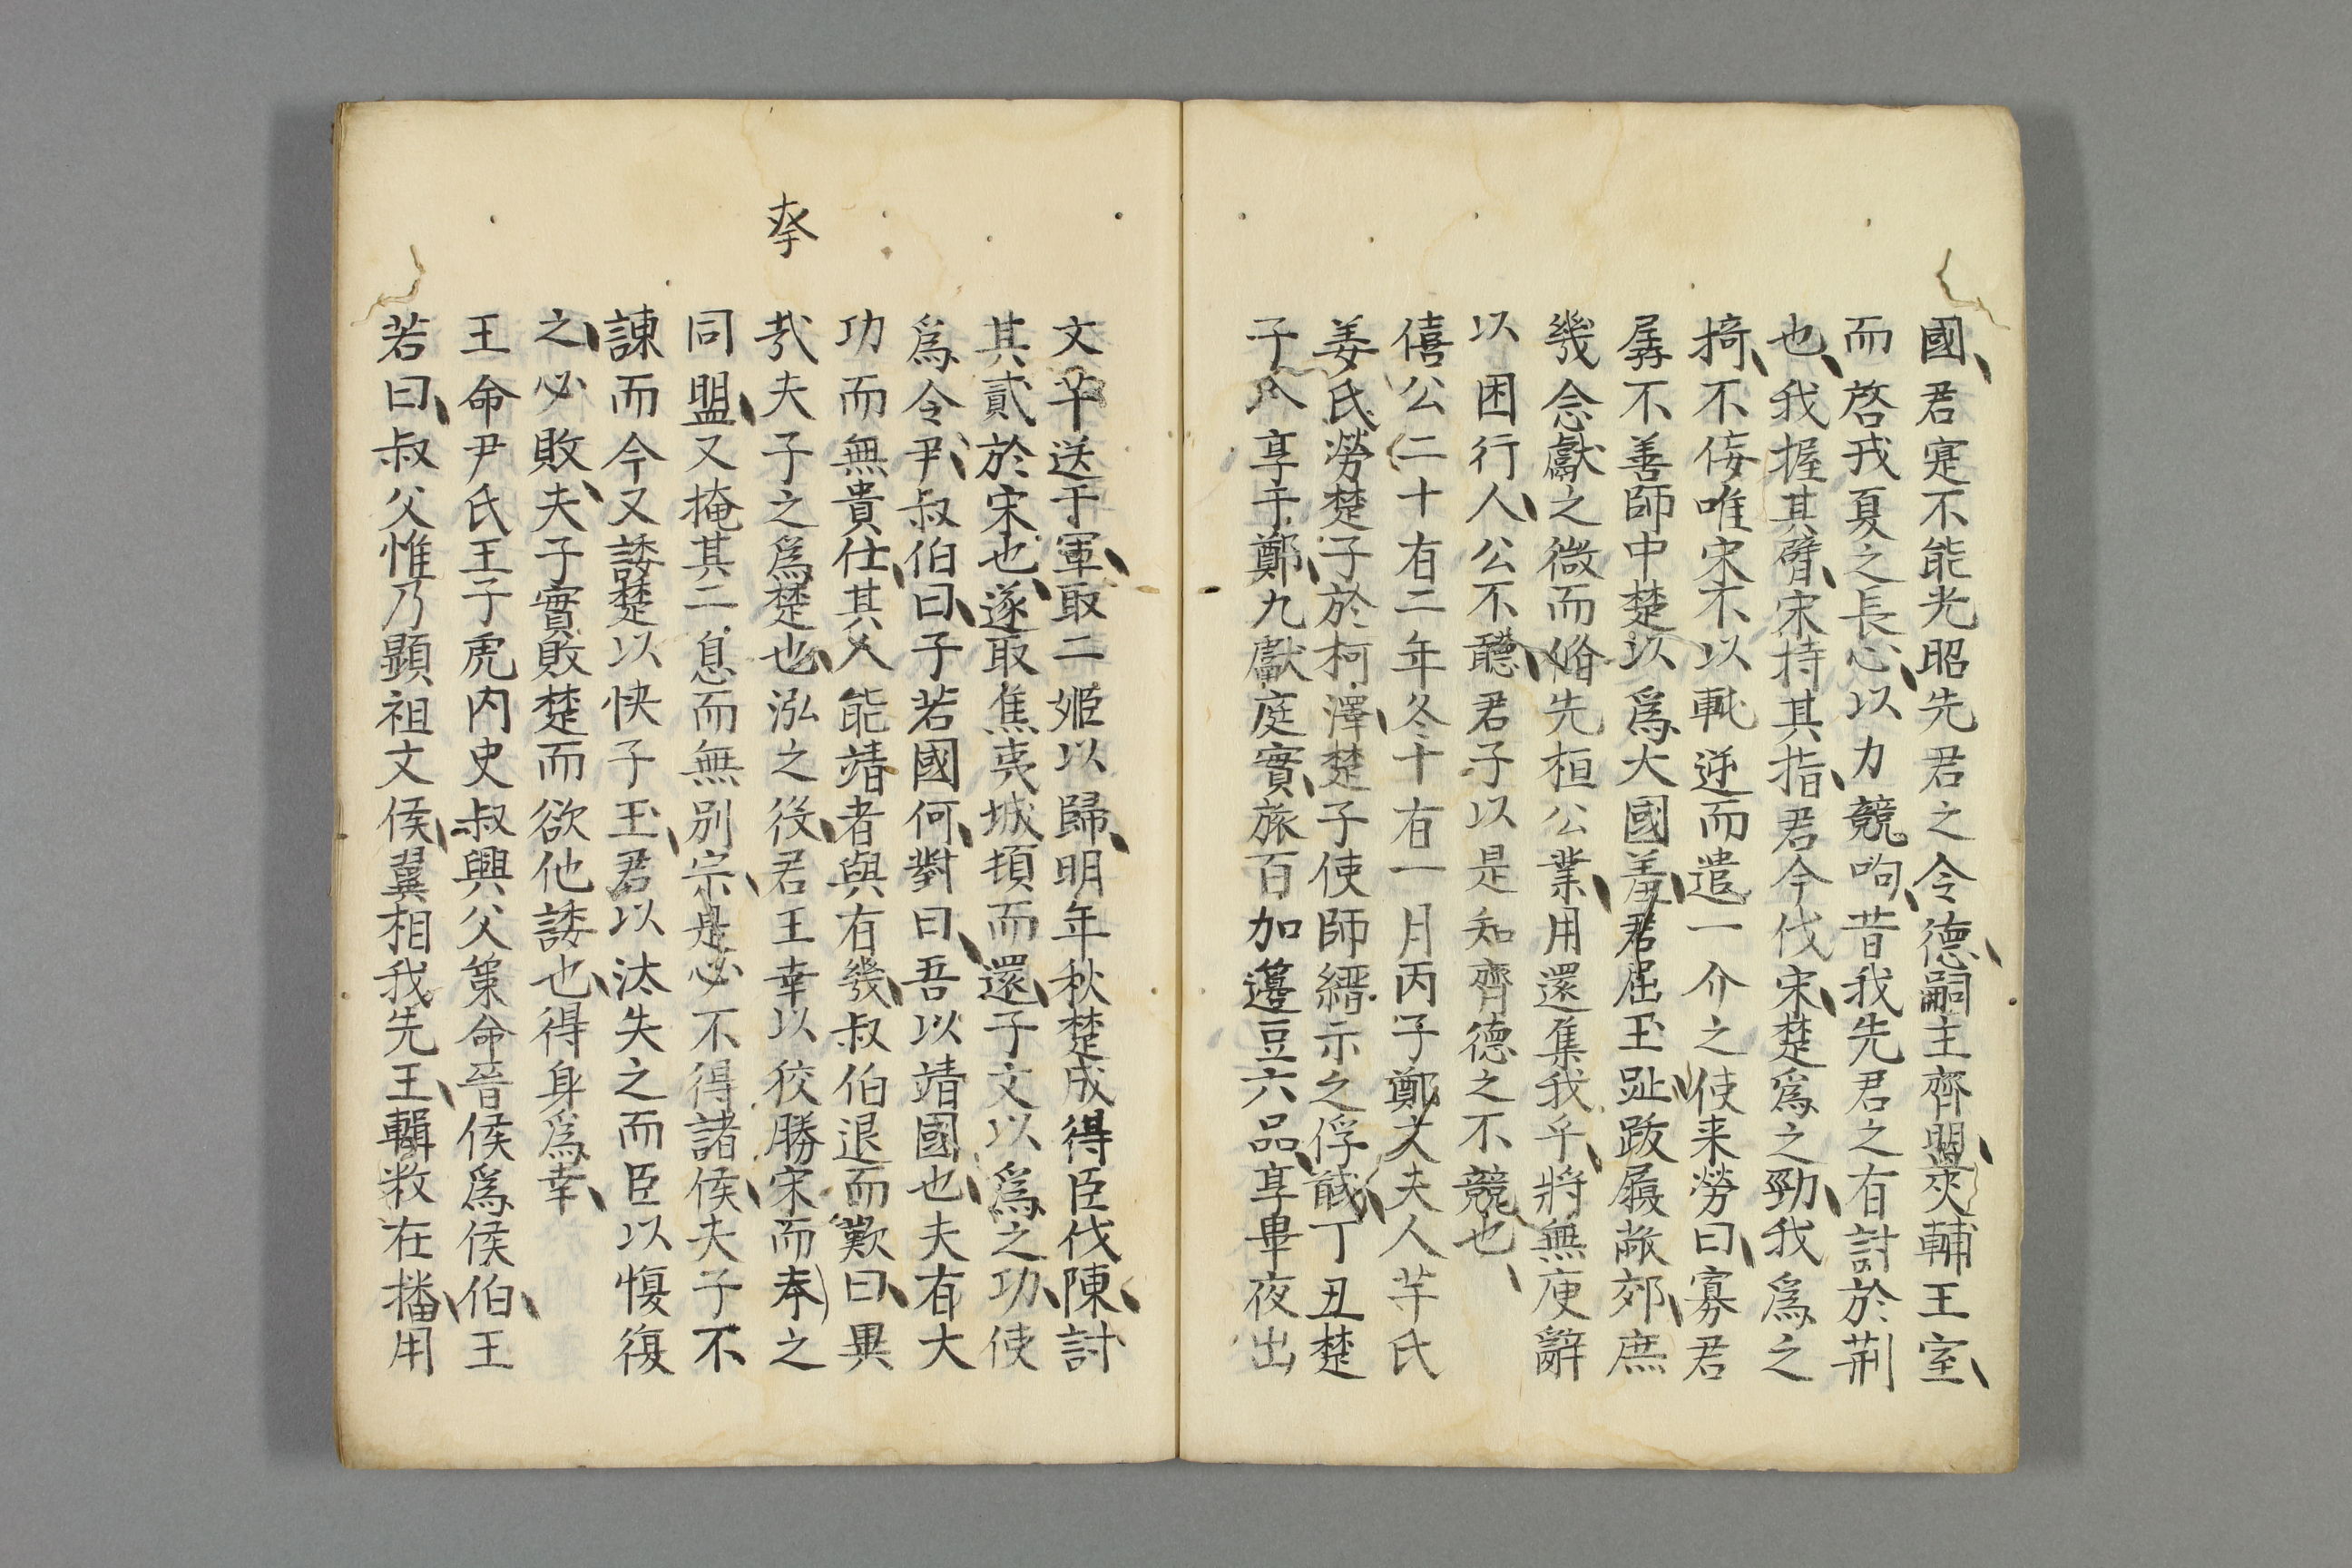 國君寔不能光昭先君之令德嗣主齊盟夾輔王室
而啓我夏之長心以力競呴昔我先君之有討於荆
也我握其臂宋持其指君今伐宋楚爲之勁我爲之
掎不侫唯宋不以軏逆而遣一介之使来勞曰寡君
孱不善師中楚以爲大國羞君屈玉趾跋履敝郊庶
幾念獻之微而媍先桓公業用還集我乎將無庾辭
以困行人公不聽君子以是知齊德之不競也
僖公二十有二年冬十有一月丙子鄭文夫人芉氏
姜氏勞楚子於柯澤楚子使師縉示之俘馘丁丑楚
子入享于鄭九獻庭實旅百加籩豆六品享畢夜出
文芊送于軍取二姬以歸明年秋楚成得臣伐陳討
其貳於宋也遂取焦夷城頓而還子文以爲之功使
爲令尹叔伯曰子若國何對曰吾以靖國也夫有大
功而無貴仕其人能靖者與有幾叔伯退而歎曰異
㢤夫子之爲楚也泓之役君王幸以狡勝宋而奉之
同盟又掩其二息而無别宗是必不得諸侯夫子不
諫而今又諉楚以快子玉君以汰失之而臣以愎復
之必敗夫子實敗楚而欲他諉也得身爲幸
王命尹氏王子虎内史叔興父策命晉侯爲侯伯王
若曰叔父惟乃顯祖文侯翼相我先王輯敉在播用